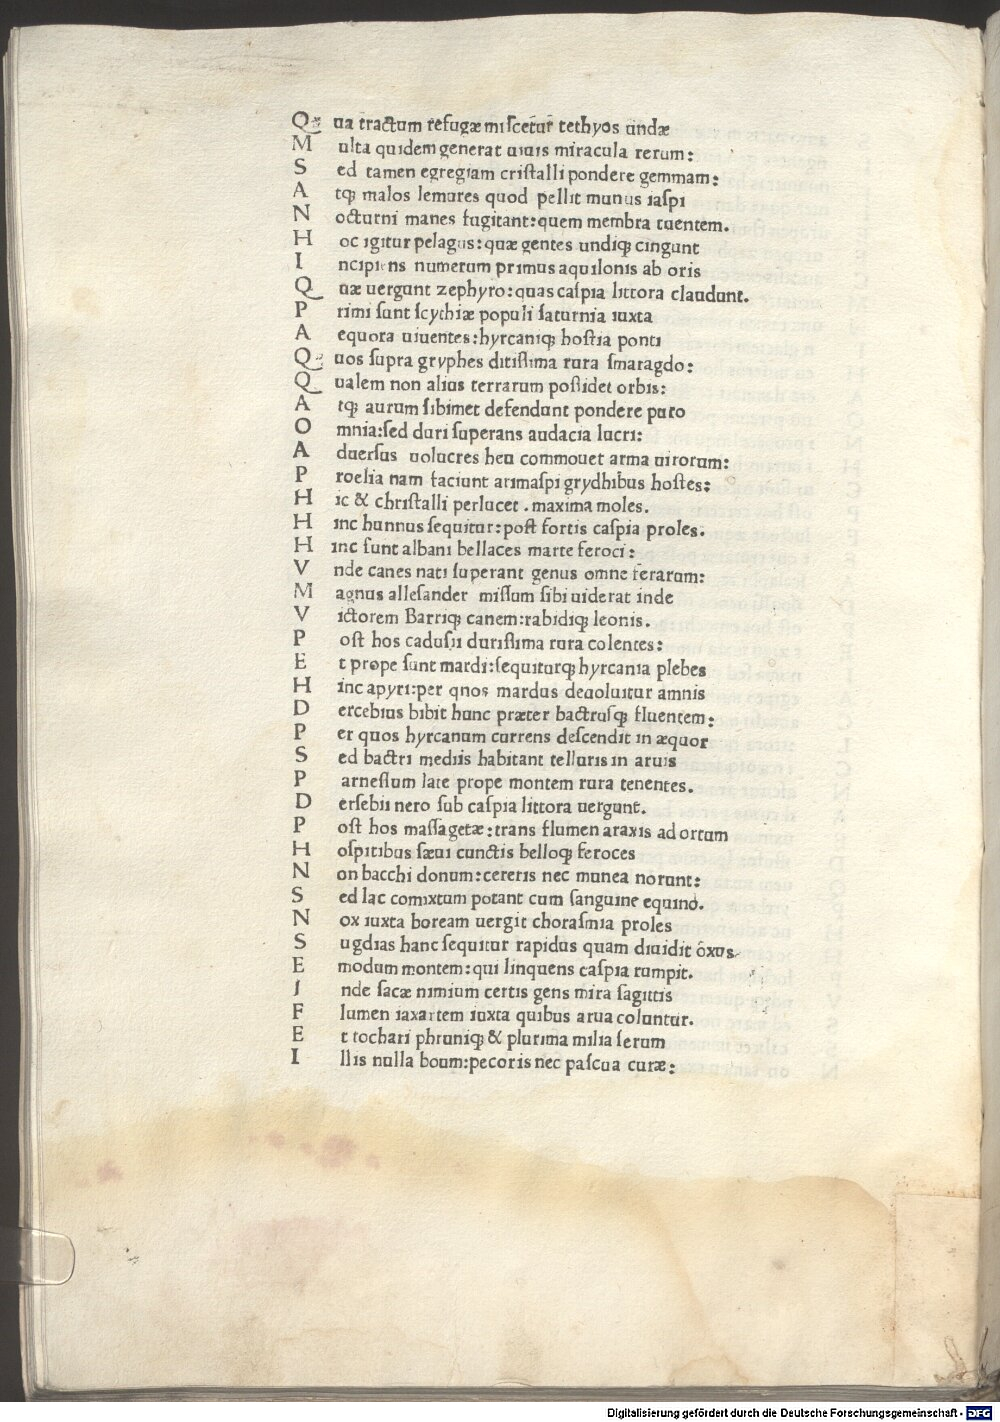 Qua tractum refugæ miscetur tethyos undæ
Multa quidem generat uiuis miracula rerum:
Sed tamen egregiam cristalli pondere gemmam:
Atq; malos lemures quod pellit munus iaspi
Nocturni manes fugitant: quem membra tuentem.
Hoc igitur pelagus: quæ gentes undiq; cingunt
Incipiens numerum primus aquilonis ab oris
Quæ uergunt zephyro: quas caspia littora claudunt.
Primi sunt scythiæ populi saturnia iuxta
Aequora uiuentes: hyrcaniq; hostia ponti
Quos supra gryphes ditissima rura smaragdo:
Qualem non alius terrarum possidet orbis:
Atq; aurum sibimet defendunt pondere puro
Omnia: sed duri superans audacia lucri:
Aduersus uolucres heu commouet arma uirorum:
Proelia nam faciunt arimaspi grydhibus hostes:
Hic & christalli perlucet . maxima moles.
Hinc hunnus sequitur: post fortis caspia proles.
Hinc sunt albani bellaces marte feroci:
Vnde canes nati superant genus omne ferarum:
Magnus allesander missum sibi uiderat inde
Victorem Barriq; canem: rabidiq; leonis.
Post hos cadusii durissima rura colentes:
Et prope sunt mardi: sequiturq; hyrcania plebes
Hinc apyri: per qnos mardus deaoluitur amnis
Dercebius bibit hunc præter bactrusq; fluentem:
Per quos hyrcanum currens descendit in æquor
Sed bactri mediis habitant telluris in aruis
Parnessum late prope montem rura tenentes.
Dersebii nero sub caspia littora uergunt.
Post hos massagetæ: trans flumen araxis ad ortum
Hospitibus sæui cunctis belloq; feroces
Non bacchi donum: cereris nec munea norunt:
Sed lac comixtum potant cum sanguine equino.
Nox iuxta boream uergit chorasmia proles
Sugdias hanc sequitur rapidus quam diuidit ôxus
Emodum montem: qui linquens caspia rumpit.
Inde sacæ nimium certis gens mira sagittis
Flumen iaxartem iuxta quibus arua coluntur.
Et tochari phruniq; & plurima milia serum
Illis nulla boum: pecoris nec pascua curæ:
Digitalisierung gefördert durch die Deutsche Forschungsgemeinschaft - DFG